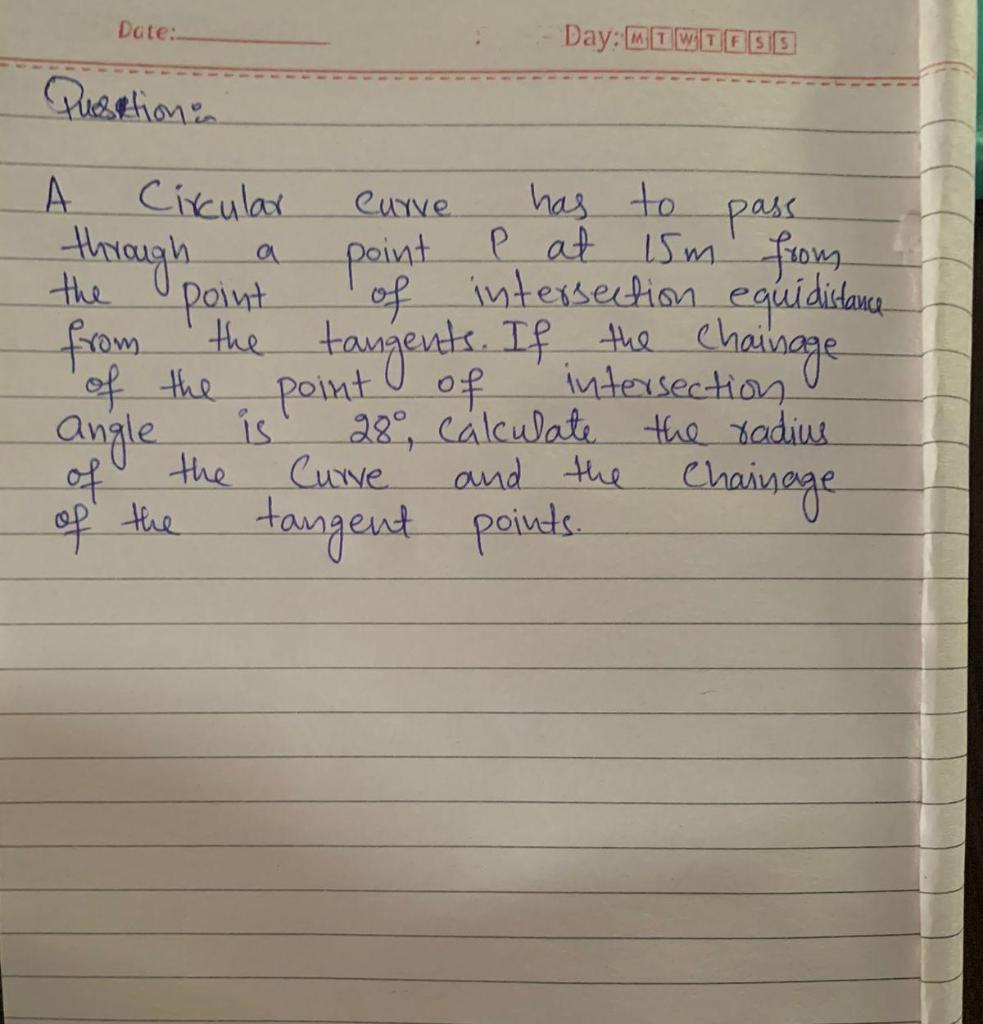 Date:
Day: M T W T F S S
Question:
A Circular curve has to pass
through a point P at 15m from
the point of intersection equidistance
from the tangents. If the Chainage
of the point of intersection
angle is 28°, Calculate the radius
of the Curve and the Chainage
of the tangent points.